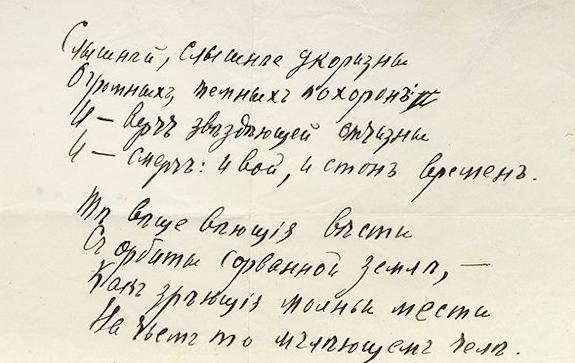 Слышнѣй, слышнѣе укоризны
Огромныхъ, темныхъ похоронъ
И — верчъ звѣздѣющей отчизны
И — смерчъ: и вой, и стонъ временъ.
Тѣ вѣще вѣющія вѣсти
Съ орбиты сорванной землѣ, —
Какъ зрѣющія молньи мести
На чьемъ то мглѣющемъ челѣ.